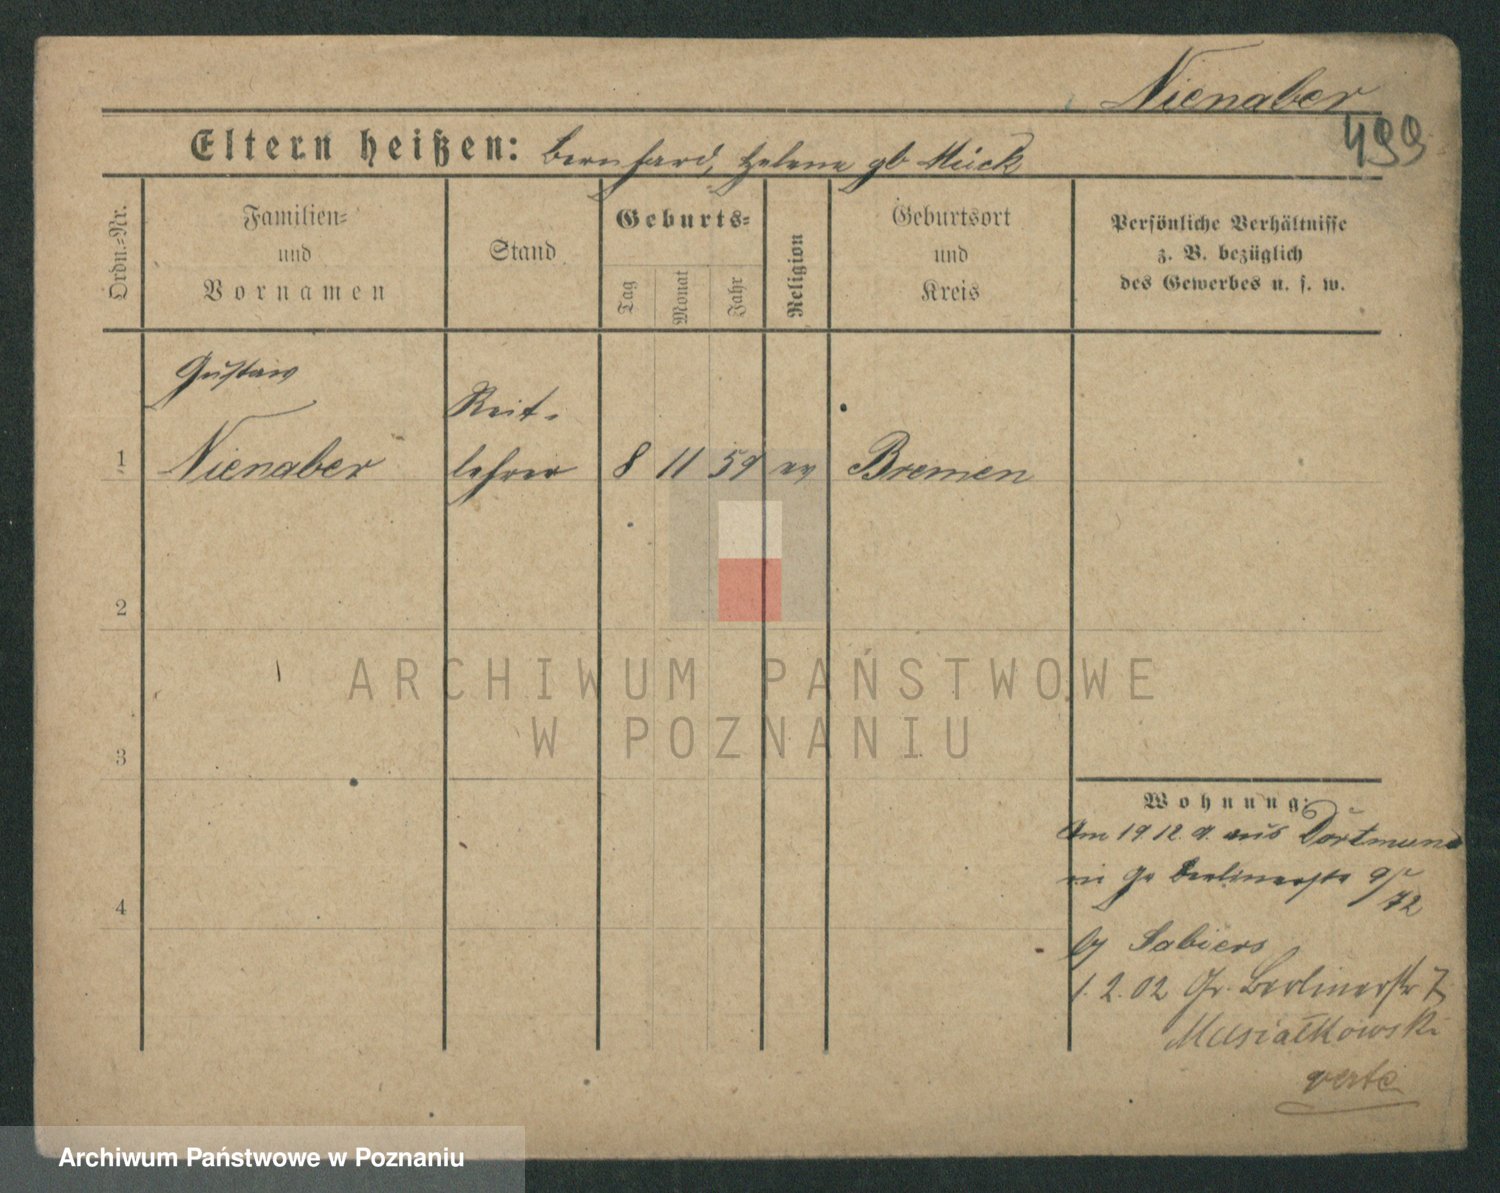 Nienaber
499
Eltern heißen: Bernhard, Helene gb Mück
Ordn.=Nr.
Familien=
und
Vornamen
Stand
Geburts=
Tag
Monat
Jahr
Religion
Geburtsort
und
Kreis
Persönliche Verhältnisse
z. B. bezüglich
des Gewerbes u. s. w.
Gustav
Reit-
1 Nienaber lehrer 8 11 59 ev Bremen
2
ARCHIWUM PAŃSTWOWE
W POZNANIU
3
Wohnung:
Am 19 12. 9. aus Dortmund
Gr Berlinerstr
72
by Sabiers
1. 2. 02 Gr. Berlinerstr 7
4
Musiałkowski
verte
Archiwum Państwowe w Poznaniu